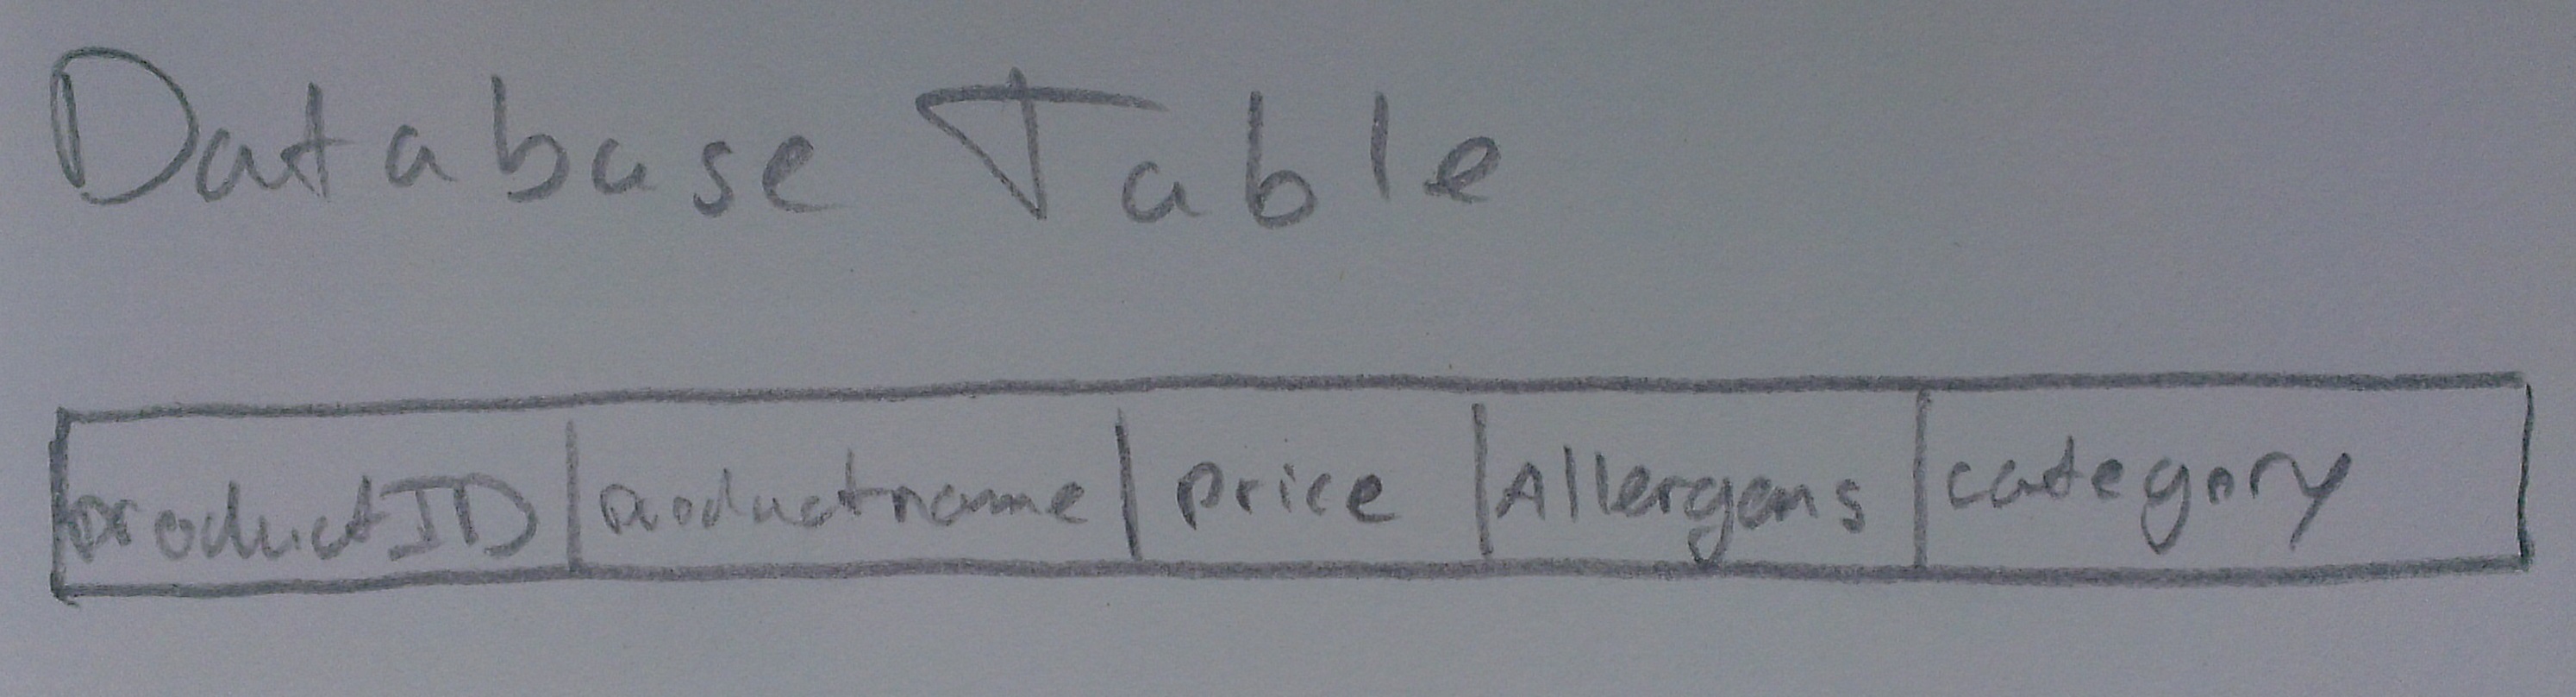 Database Table
productID productname price Allergens category